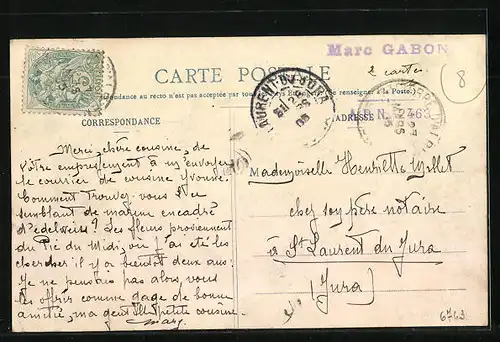 Marc GABON
2 cartes
8
CARTE POSTALE
(La Correspondance au recto n'est pas acceptée par tous (se renseigner à la Poste.)
CORRESPONDANCE
ADRESSE
A.B.N. 7463
ST LAURENT-DU-JURA
Merci, chère cousine, de
votre empressement à m'envoyer
le courrier de cousine Yvonne.
Comment trouvez vous ce
semblant de marine encadré
d'edelweiss? Ces fleurs proviennent
du Pic du Midi, où j'ai été les
chercher il y a bientôt deux ans.
Je ne pensais pas alors, vous
en offrir comme gage de bonne
amitié, ma gentille petite cousine.
Marc
Mademoiselle Henriette Millet
chez son père notaire
à St Laurent du Jura
(Jura)
6763